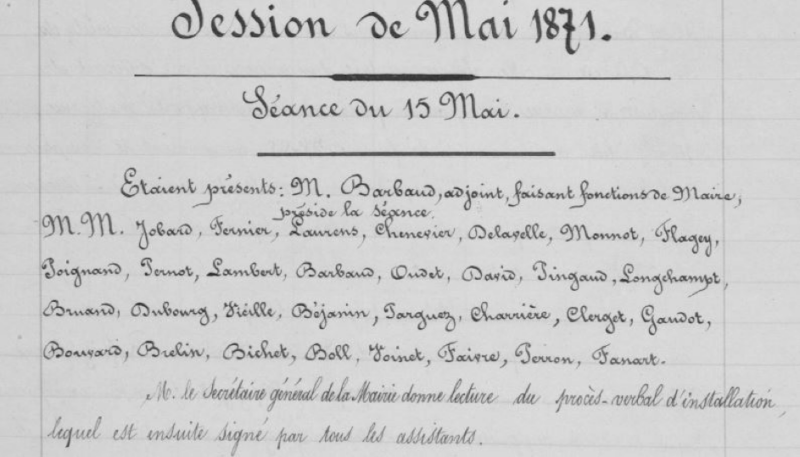 Session de Mai 1871.
Séance du 15 Mai.
Etaient présents: M. Barbaud, adjoint, faisant fonctions de Maire,
préside la séance.
M.M. Jobard, Fernier, Laurens, Chenevier, Delavelle, Monnot, Flagey,
Poignand, Pernot, Lambert, Barbaud, Oudet, David, Pingaud, Longchampt,
Bruand, Dubourg, Vieille, Béjanin, Targuez, Charrière, Clerget, Gaudot,
Bouvard, Brelin, Bichet, Boll, Voinet, Faivre, Perron, Fanart.
M. le Secrétaire général de la Mairie donne lecture du procès-verbal d'installation,
lequel est ensuite signé par tous les assistants.